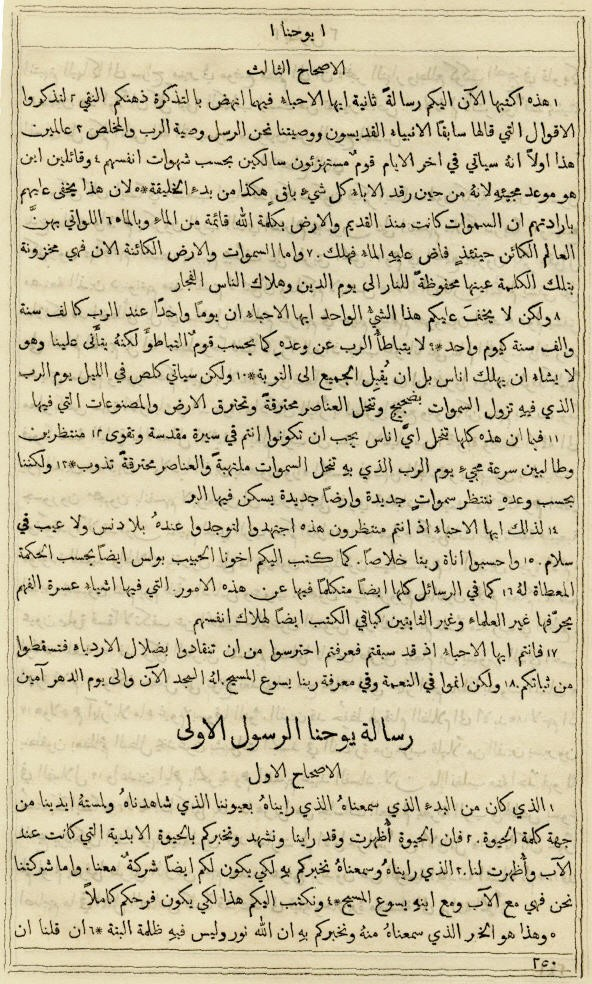 ١ يوحنا ١
الاصحاح الثالث
١ هذه اكتبها الآن اليكم رسالةً ثانية ايها الاحباء فيهما انهض بالتذكرة ذهنكم النقي ٢ لتذكروا
الاقوال التي قالها سابقًا الانبياء القديسون ووصيتنا نحن الرسل وصية الرب والمخلص ٣ عالمين
هذا اولاً انهُ سياتي في اخر الايام قومٌ مستهزئون سالكين بحسب شهوات انفسهم ٤ وقائلين اين
هو موعد مجيئهِ لانهُ من حين رقد الاباء كل شيء باقٍ هكذا من بدء الخليقة* ٥ لان هذا يخفى عليهم
بارادتهم ان السموات كانت منذ القديم والارض بكلمة الله قائمة من الماء وبالماء ٦ اللواتي بهنَّ
العالم الكائن حينئذٍ فاض عليهِ الماء فهلك. ٧ واما السموات والارض الكائنة الان فهي مخزونة
بتلك الكلمة عينها محفوظةً للنار الى يوم الدين وهلاك الناس الفجار
٨ ولكن لا يخفَ عليكم هذا الشيُّ الواحد ايها الاحباء ان يومًا واحدًا عند الرب كالف سنة
والف سنة كيوم واحد* ٩ لا يتباطأ الرب عن وعدهِ كما يحسب قومٌ التباطؤَ لكنهُ يتأنى علينا وهو
لا يشاء ان يهلك اناس بل ان يُقبِل الجميع الى التوبة* ١٠ ولكن سياتي كلص في الليل يوم الرب
الذي فيهِ تزول السموات بضجيجٍ وتنحل العناصر محترقةً وتحترق الارض والمصنوعات التي فيها
١١ فبما ان هذه كلها تنحل ايَّ اناس يجب ان تكونوا انتم في سيرة مقدسة وتقوى ١٢ منتظرين
وطالبين سرعة مجيء يوم الرب الذي بهِ تنحل السموات ملتهبةً والعناصر محترقةً تذوب* ١٣ ولكننا
بحسب وعدهِ ننتظر سمواتٍ جديدة وارضًا جديدة يسكن فيها البر
١٤ لذلك ايها الاحباء اذ انتم منتظرون هذه اجتهدوا لتوجدوا عندهُ بلا دنس ولا عيب في
سلام. ١٥ واحسبوا اناة ربنا خلاصًا. كما كتب اليكم اخونا الحبيب بولس ايضًا بحسب الحكمة
المعطاة لهُ ١٦ كما في الرسائل كلها ايضًا متكلمًا فيها عن هذه الامور. التي فيها اشياء عسرة الفهم
يحرّفها غير العلماء وغير الثابتين كباقي الكتب ايضًا لهلاك انفسهم
١٧ فانتم ايها الاحباء اذ قد سبقتم فعرفتم احترسوا من ان تنقادوا بضلال الاردياء فتسقطوا
من ثباتكم. ١٨ ولكن انموا في النعمة وفي معرفة ربنا يسوع المسيح. لهُ المجد الآن والى يوم الدهر آمين
رسالة يوحنا الرسول الاولى
الاصحاح الاول
١ الذي كان من البدء الذي سمعناهُ الذي رايناهُ بعيوننا الذي شاهدناهُ ولمستهُ ايدينا من
جهة كلمة الحيوة. ٢ فان الحيوة أُظهرت وقد راينا ونشهد ونخبركم بالحيوة الابدية التي كانت عند
الآب وأُظهرت لنا. ٣ الذي رايناهُ وسمعناهُ نخبركم بهِ لكي يكون لكم ايضًا شركةٌ معنا. واما شركتنا
نحن فهي مع الآب ومع ابنهِ يسوع المسيح* ٤ ونكتب اليكم هذا لكي يكون فرحكم كاملاً
٥ وهذا هو الخبر الذي سمعناهُ منهُ ونخبركم بهِ ان الله نور وليس فيهِ ظلمة البتة* ٦ ان قلنا ان
٢٥٠